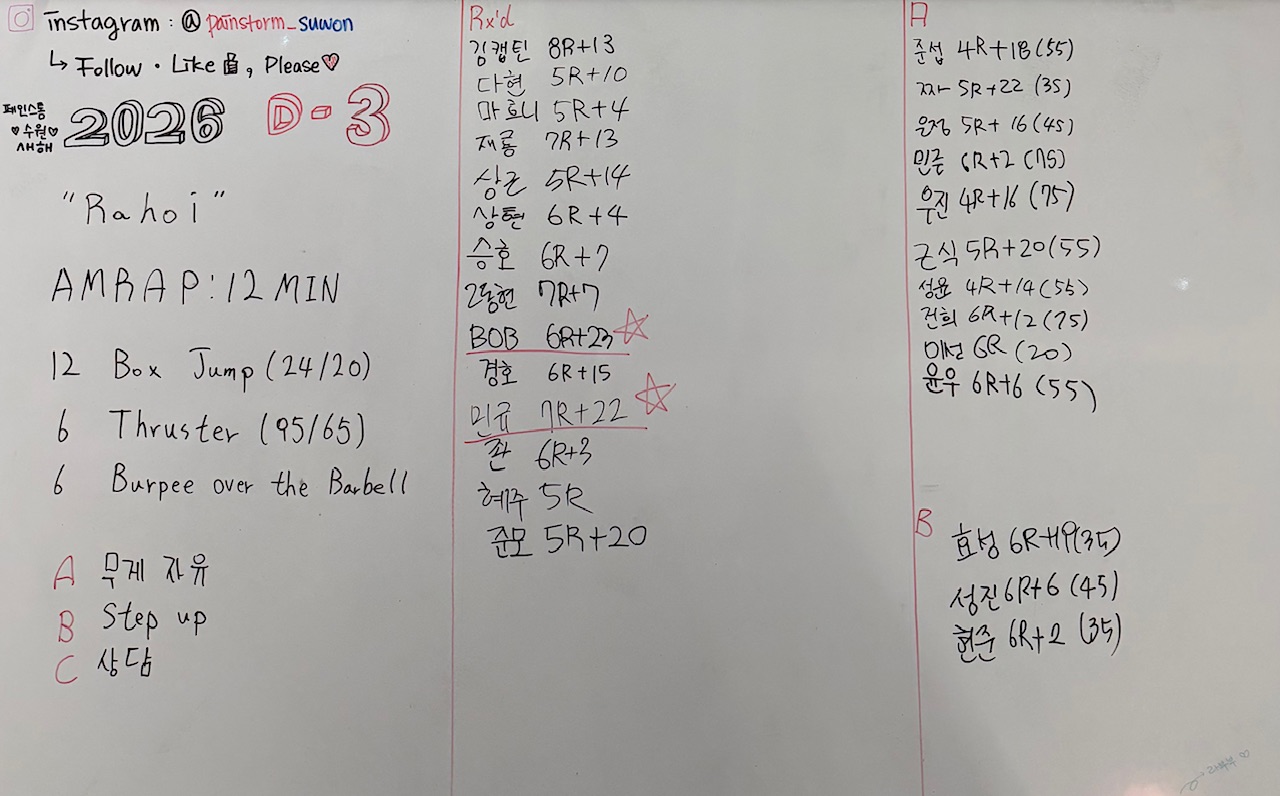 instagram : @ painstorm_suwon
↳ Follow · Like , Please♡
페인스톰
♡수원♡
새해
2026 D-3
"Rahoi"
AMRAP:12MIN
12 Box Jump (24/20)
6 Thruster (95/65)
6 Burpee over the Barbell
A 무게 자유
B Step up
C 상담
Rx'd
김캡틴 8R+13
다현 5R+10
마효니 5R+4
재룡 7R+13
상근 5R+14
상현 6R+4
승호 6R+7
2동현 7R+7
BOB 6R+23
경호 6R+15
민규 7R+22
좐 6R+3
혜주 5R
준모 5R+20
A
준섭 4R+18(55)
짜 5R+22 (35)
은정 5R+16(45)
민준 6R+2 (75)
우진 4R+16 (75)
근식 5R+20(55)
성윤 4R+14(55)
건희 6R+12(75)
미성 6R (20)
윤우 6R+6 (55)
B
효성 6R+19(35)
성진 6R+6 (45)
현준 6R+2 (35)